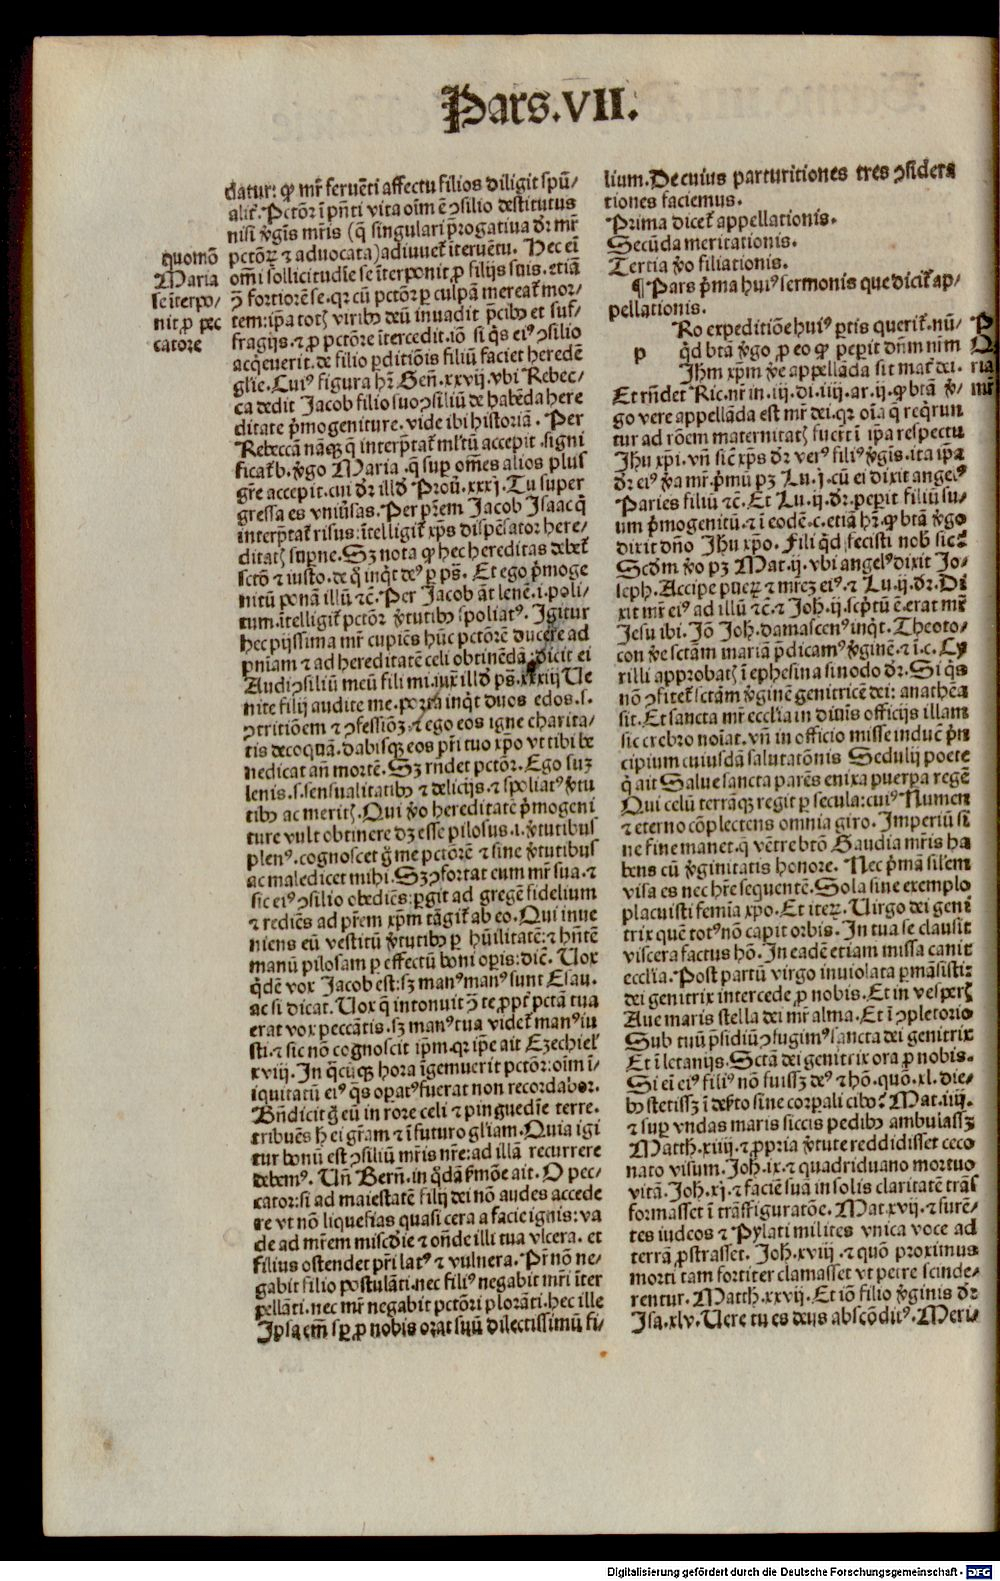 Pars.VII.
quomō
Maria
se īterpo/
nit ꝓ pec
catore
datur: ꝙ mr̄ feruēti affectu filios diligit spū/
alit̄. Pctōr ī pn̄ti vita oīm ē ꝯsilio destitutus
nisi v̄gīs mr̄is (q̄ singulari p̄rogatiua dr̄ mr̄
pctōꝝ ⁊ aduocata) adiuuet̄ īteruētu. Hec eī
om̄i sollicitudīe se īterponit ꝓ filijs suis. etiā
ꝯ̄ fortiorē se. qꝛ cū pctōr ꝑ culpā mereat̄ mor/
tem: ip̄a totꝭ viribꝰ deū inuadit p̄cibꝰ et suf/
fragijs. ⁊ ꝓ pctōre ītercedit. iō si q̄s eiꝰ ꝯsilio
acq̄euerit. de filio ꝑditiōis filiū faciet heredē
glīe. Cuiꝰ figura hr̄ Geñ. xxvij. vbi Rebec/
ca dedit Jacob filio suo ꝯsiliū de habēda here
ditate p̄mogeniture. vide ibi historiā. Per
Rebeccā nāqꝫ q̄ interp̄tat̄ ml̄tū accepit. signi
ficat̄ b. v̄go Maria. q̄ suꝑ om̄es alios plus
gr̄e accepit. cui dr̄ illḋ Prou̅. xxxj. Tu super
gressa es vniūsas. Per pr̄em Jacob Isaac q̄
interp̄tat̄ risus: ītelligit̄ xp̄s dispēsator here/
ditatꝭ suꝑne. Sꝫ nota ꝙ hec hereditas debet̄
sctō ⁊ iusto. de q̄ inq̇t deꝰ ꝑ ps̄. Et ego p̄moge
nitū ponā illū ⁊c̄. Per Jacob āt lenē. i. poli/
tum. ītelligit̄ pctōr v̄tutibꝰ spoliatꝰ. Igitur
hec pijssima mr̄ cupiēs hūc pctōrē ducere ad
pn̄iam ⁊ ad hereditatē celi obtinēdā: dicit ei
Audi ꝯsiliū meū fili mi. iux̄ illḋ ps̄. xxxiij Ue
nite filij audite me. porta inq̇t duos edos. s.
ꝯtritiōem ⁊ ꝯfessiōꝫ. ⁊ ego eos igne charita/
tis decoquā. dabisqꝫ eos pr̄i tuo xp̄o vt tibi be
nedicat an̄ mortē. Sꝫ rn̄det pctōr. Ego suꝫ
lenis. s. sensualitatibꝰ ⁊ delicijs. ⁊ spoliatꝰ v̄tu
tibꝰ ac meritꝭ. Qui v̄o hereditatē p̄mogeni
ture vult obtinere dꝫ esse pilosus. i. v̄tutibus
plenꝰ. cognoscet g̊ me pctōrē ⁊ sine v̄tutibus
ac maledicet mihi. Sꝫ ꝯfortat eum mr̄ sua. ⁊
sic eiꝰ ꝯsilio obediēs: ꝑgit ad gregē fidelium
⁊ rediēs ad pr̄em xp̄m tāgit̄ ab eo. Qui inue
niens eū vestitū v̄tutibꝰ ꝑ hūilitatē: ⁊ hn̄tē
manū pilosam ꝑ effectū boni oꝑis: dic̄. Uox
q̇dē vox Jacob est: sꝫ manꝰ manꝰ sunt Esau.
ac si dicat. Uox q̄ intonuit ꝯ̄ te, ꝓpt̄ pctā tua
erat vox peccātis. sꝫ manꝰ tua videt̄ manꝰ iu
sti. ⁊ sic nō cognoscit ip̄m. qꝛ ip̄e ait Ezechiel̄
xviij. In q̄cūqꝫ hora īgemuerit pctōr: oīm ī/
iquitatū eiꝰ q̄s opatꝰ fuerat non recordabor.
Bn̄dicit g̊ eū in rore celi ⁊ pinguedīe terre.
tribuēs h̄ ei gr̄am ⁊ ī futuro gl̄iam. Quia igi
tur bonū est ꝯsiliū mr̄is nr̄e: ad illā recurrere
debemꝰ. Un̄ Bern̄. in q̇dā ẜmōe ait. O pec/
cator: si ad maiestatē filij dei nō audes accede
re vt nō liquefias quasi cera a facie ignis: va
de ad mr̄em mīsc̄die ⁊ on̄de illi tua vlcera. et
filius ostendet pr̄i latꝰ ⁊ vulnera. Pr̄ nō ne/
gabit filio postulāti. nec filiꝰ negabit mr̄i īter
pellāti. nec mr̄ negabit pctōri plorāti. hec ille
Ip̄sa em̄ sꝑ ꝓ nobis orat suū dilectissimū fi/
lium. De cuius parturitiones tres ꝯsidera
tiones faciemus.
Prima dicet̄ appellationis.
Secūda meritationis.
Tertia v̄o filiationis.
¶ Pars p̄ma huiꝰ sermonis que dicit̄ ap/
pellationis.
p
Ro expeditiōe huiꝰ ꝑtis querit̄. nū/
q̇d btā v̄go ꝓ eo ꝙ peperit dn̄m nr̄m
Jhm xp̄m v̄e appellāda sit mat̄ dei.
Et rn̄det Ric. nr̄ in. iij. di. iiij. ar. ij. ꝙ btā v̄/
go vere appellāda est mr̄ dei. qꝛ oīa q̄ req̄run
tur ad rōem maternitatꝭ fuer̄t ī ip̄a respectu
Jhu xp̄i. vn̄ sic̄ xp̄s dr̄ verꝰ filiꝰ v̄gīs. ita ip̄a
dr̄ eiꝰ v̄a mr̄. p̄mū pꝫ Lu. j. cū ei dixit angelꝰ
Paries filiū ⁊c̄. Et Lu. ij. dr̄. peꝑit filiū su/
um p̄mogenitū. ⁊ ī eodē. c. etiā hr̄. ꝙ btā v̄go
dixit dn̄o Jhu xp̄o. Fili q̇d fecisti nob̄ sic ⁊c̄
Scḋm v̄o pꝫ Mat. ij. vbi angelꝰ dixit Jo/
seph. Accipe pueꝝ ⁊ mr̄eꝫ eiꝰ. ⁊ Lu. ij. dr̄. Di
xit mr̄ eiꝰ ad illū ⁊c̄. ⁊ Joh. ij. sc̄ptū ē. erat mr̄
Jesu ibi. Jō Joh. damascenꝰ inq̇t. Theoto/
con v̄e sctām mariā p̄dicamꝰ v̄ginē. ⁊ ī. c. Cy
rilli approbatꝭ ī ephesina sinodo dr̄. Si q̇s
nō ꝯfitet̄ sctām v̄ginē genitricē dei: anathēa
sit. Et sancta mr̄ eccl̄ia in diuīs officijs illam
sic crebro noīat. vn̄ in officio misse induc̄ p̄n
cipium cuiusdā salutatōnis Sedulij poete
q̄ ait Salue sancta parēs enixa puerpa regē
Qui celū terrāqꝫ regit ꝑ secula: cuiꝰ Numen
⁊ eterno cōplectens omnia giro. Imperiū si
ne fine manet. q̄ vētre btō Gaudia mr̄is ha
bens cū v̄ginitatis honore. Nec p̄mā silem
visa es nec hr̄e sequentē. Sola sine exemplo
placuisti femīa xp̄o. Et iteꝝ. Uirgo dei geni
trix quē totꝰ nō capit orbis. In tua se clausit
viscera factus hō. In eadē etiam missa canit
eccl̄ia. Post partū virgo inuiolata ꝑmāsisti:
dei genitrix intercede ꝓ nobis. Et in vesperꝭ
Aue maris stella dei mr̄ alma. Et ī ꝯpletorio
Sub tuū p̄sidiū ꝯfugimꝰ sancta dei genitrix
Et ī letanijs. Sctā dei genitrix ora ꝓ nobis.
Si eī eiꝰ filiꝰ nō fuissꝫ deꝰ ⁊ hō. quō. xl. die/
bꝰ stetissꝫ ī deꝭto sine corꝑali cibo? Mat. iiij.
⁊ suꝑ vndas maris siccis pedibꝰ ambulassꝫ
Matth. xiiij. ⁊ ꝓpria v̄tute reddidisset ceco
nato visum. Joh. ix. ⁊ quadriduano mortuo
vitā. Joh. xj. ⁊ faciē suā in solis claritatē trās
formasset ī trāsfiguratōe. Mat. xvij. ⁊ furē/
tes iudeos ⁊ Pylati milites vnica voce ad
terrā ꝓstrasset. Joh. xviij. ⁊ quō proximus
morti tam fortiter clamasset vt petre scinde/
rentur. Matth. xxvij. Et iō filio v̄ginis dr̄
Isa. xlv. Uere tu es deus abscōditꝰ. Meri/
ria
mr̄
Digitalisierung gefördert durch die Deutsche Forschungsgemeinschaft - DFG